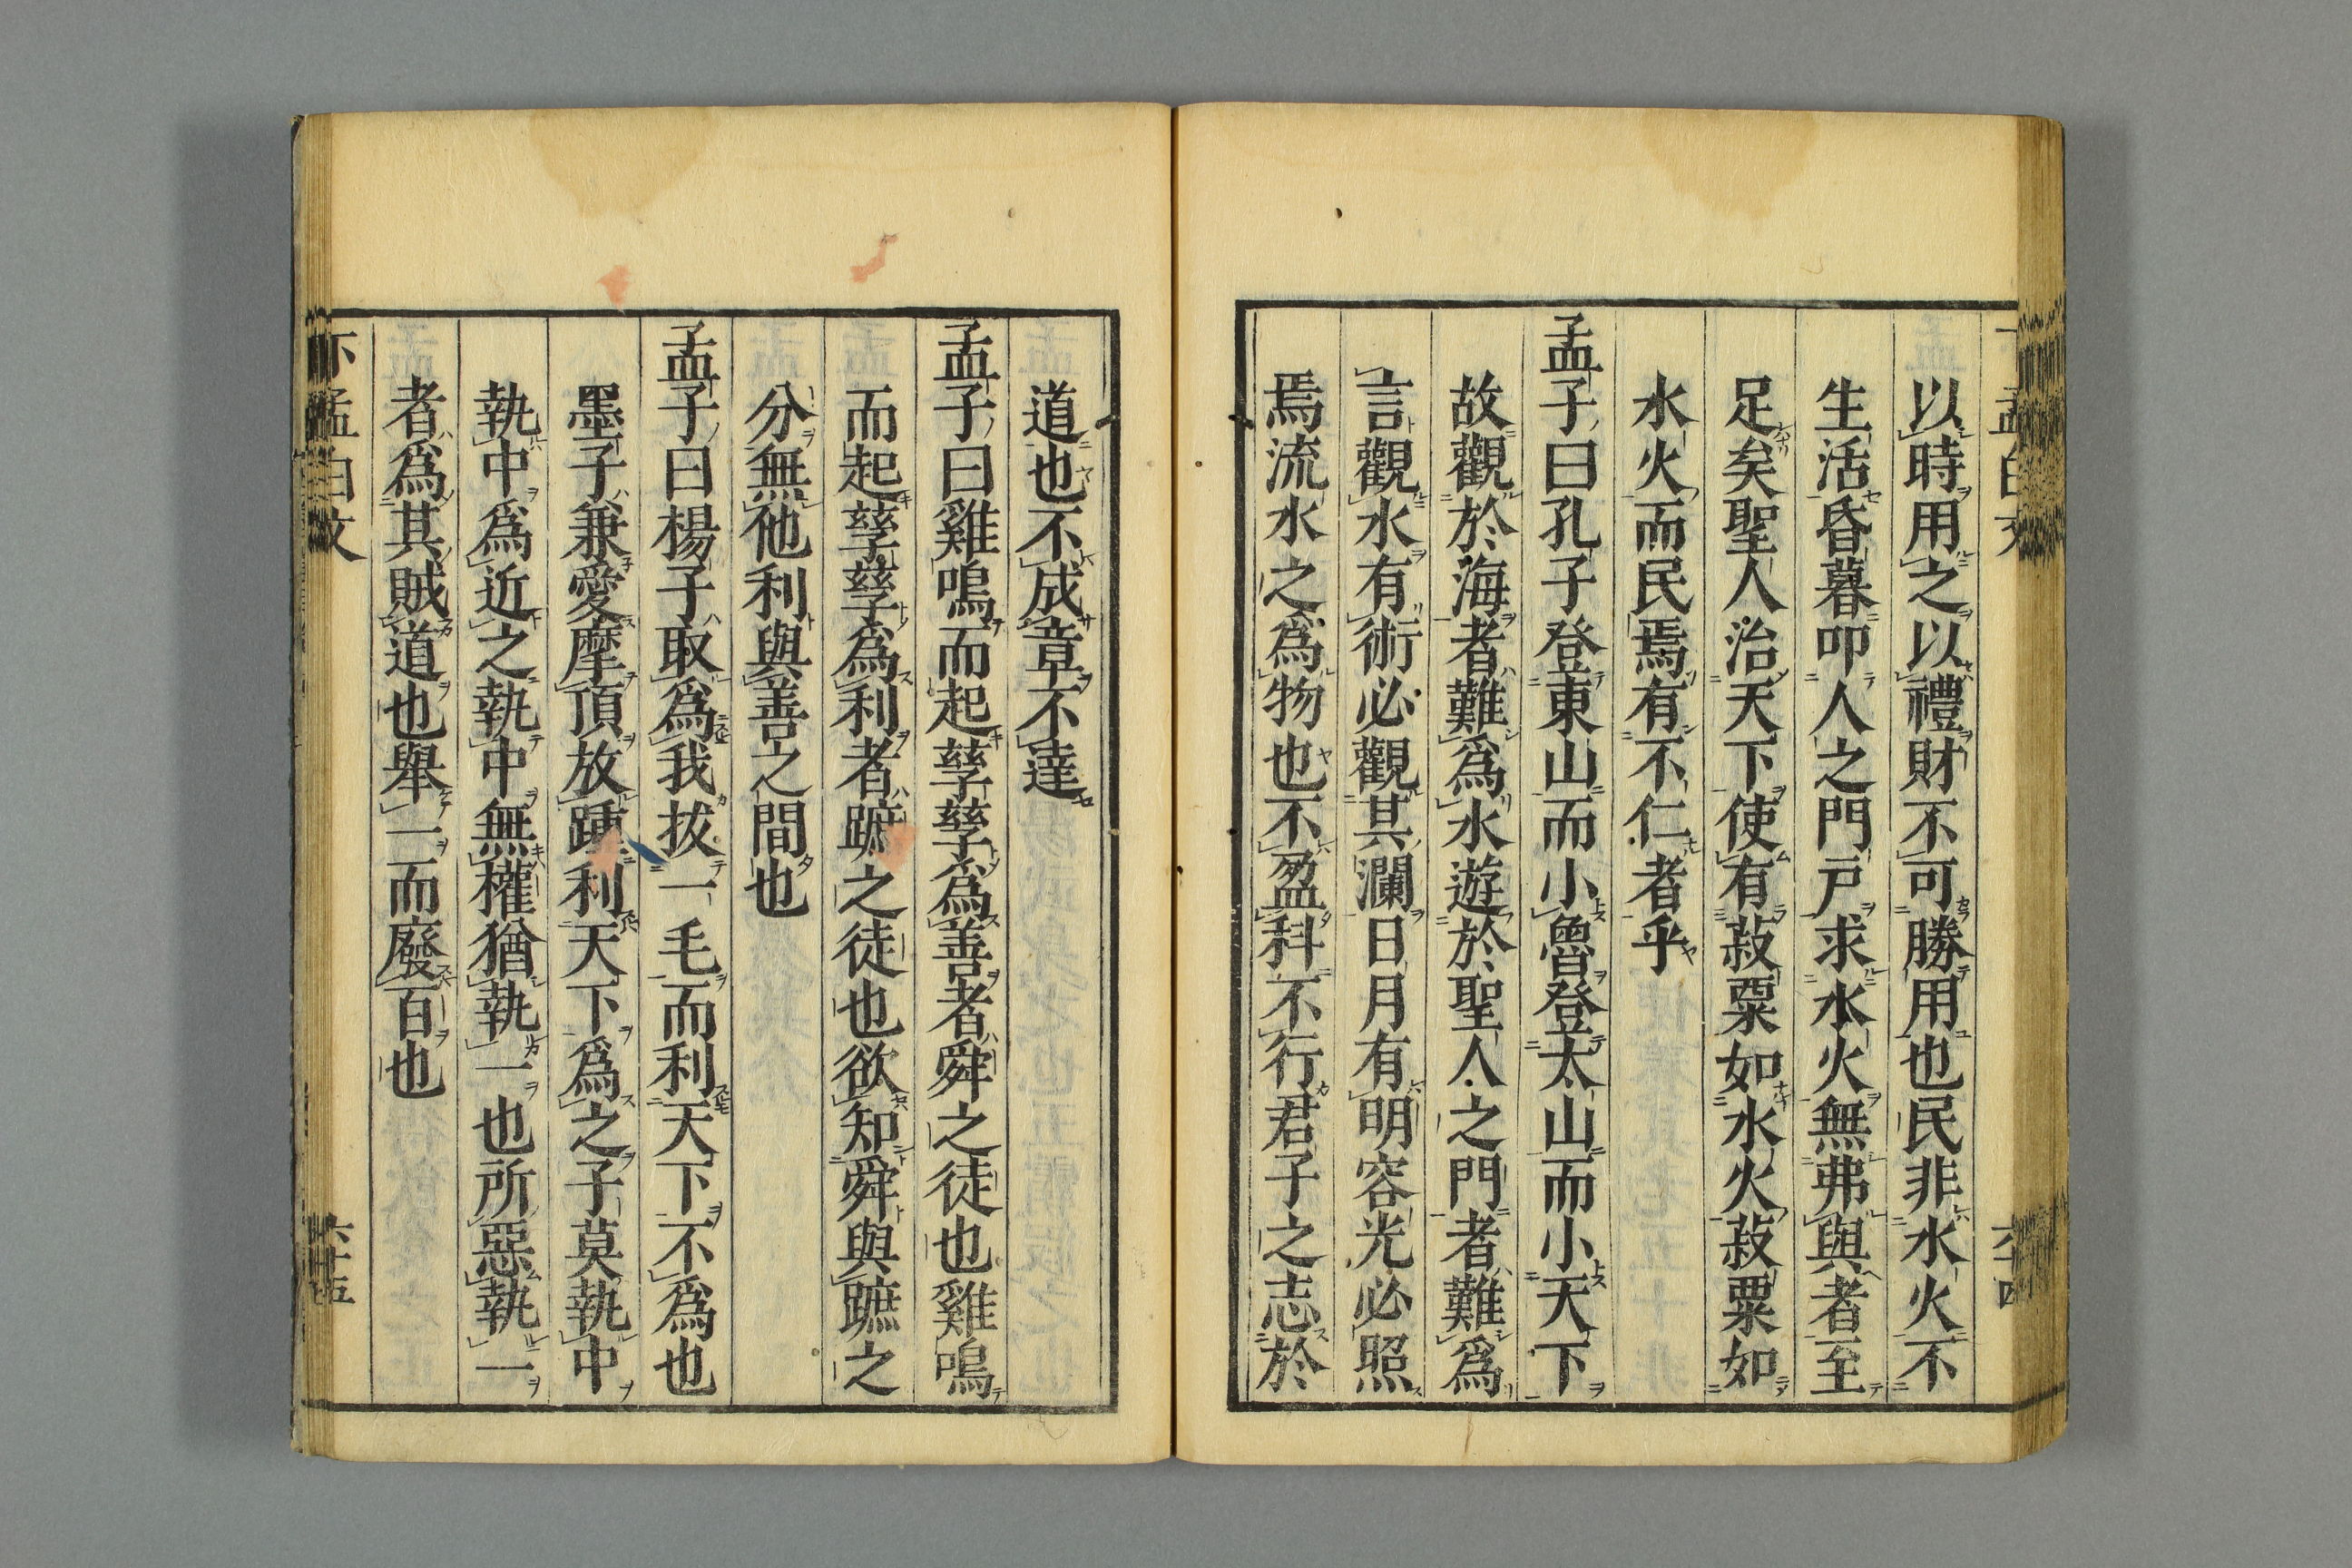 以時用之以禮財不可勝用也民非水火不
生活昏暮叩人之門戸求水火無弗與者至
足矣聖人治天下使有菽粟如水火菽粟如
水火而民焉有不仁者乎
孟子曰孔子登東山而小魯登太山而小天下
故觀於海者難爲水遊於聖人之門者難爲
言觀水有術必觀其瀾日月有明容光必照
焉流水之爲物也不盈科不行君子之志於
道也不成章不達
孟子曰雞鳴而起孳孳爲善者舜之徒也雞鳴
而起孳孳爲利者蹠之徒也欲知舜與蹠之
分無他利與善之間也
孟子曰楊子取爲我拔一毛而利天下不爲也
墨子兼愛摩頂放踵利天下爲之子莫執中
執中爲近之執中無權猶執一也所惡執一
者爲其賊道也舉一而廢百也
下孟白文
六十五